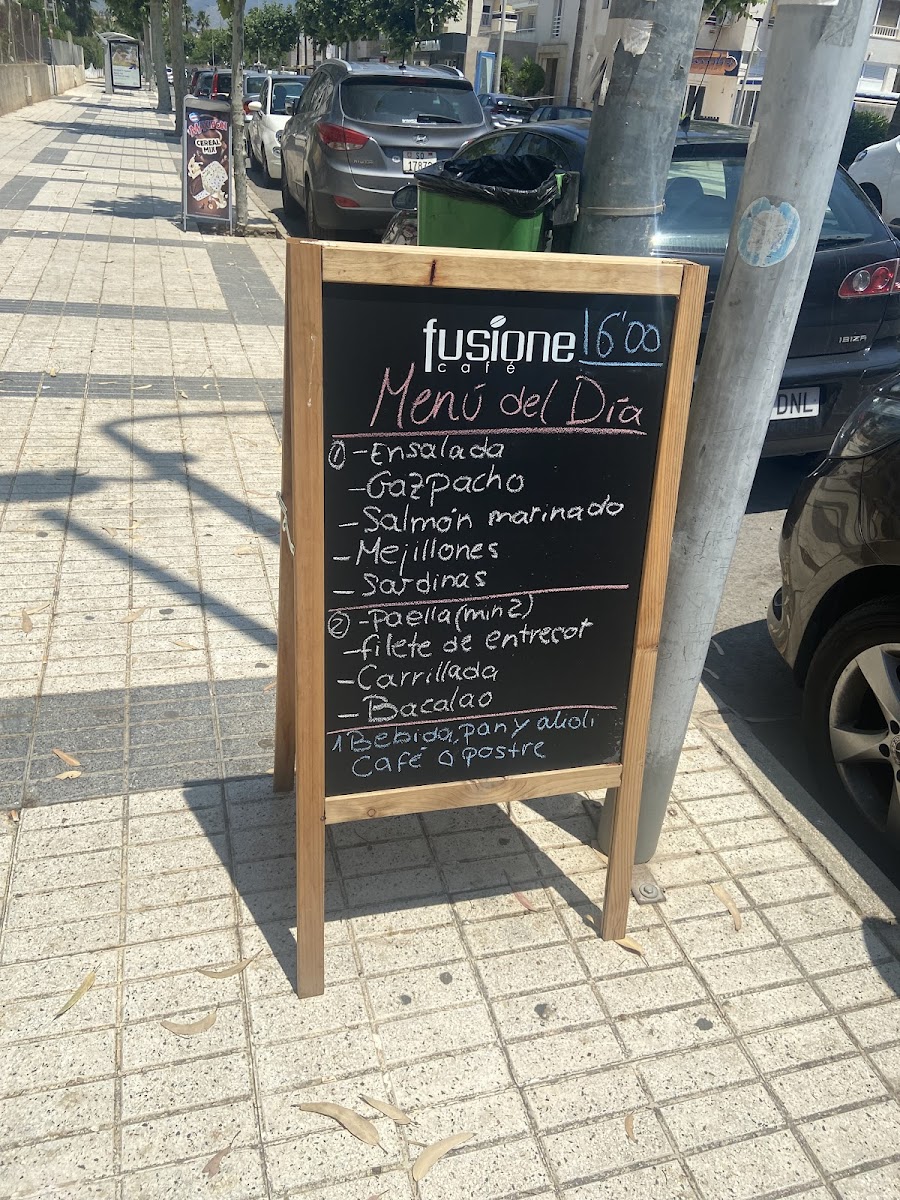 CEREAL
MIX
17878
IBIZA
DNL
fusione
café
16'00
Menú del Día
① - Ensalada
- Gazpacho
- Salmón marinado
- Mejillones
- Sardinas
② - Paella (min 2)
- filete de entrecot
- Carrillada
- Bacalao
1 Bebida, pan y alioli
Café o postre